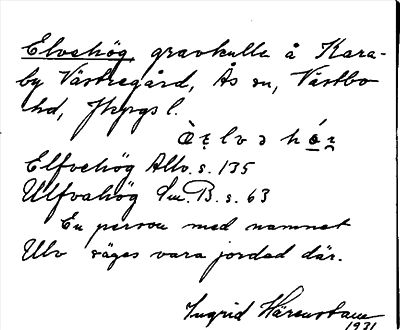 Elvehög, gravkulle å Kara-
by Västregård, Ås sn, Västbo
hd, Jkpgs l.
Elfvehög Allv. s. 135
Ulfvahög Sm. B. s. 63
En person med namnet
Ulv säges vara jordad där.
Ingrid
1931